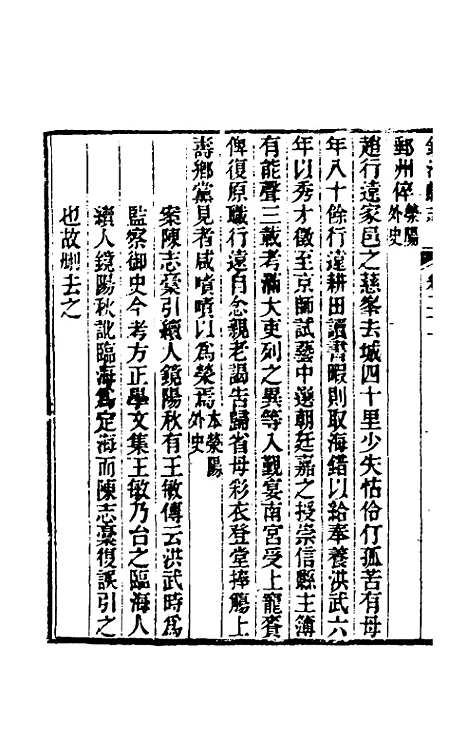 鄞州倅滎陽外史
趙行遠家邑之慈峯去城四十里少失怙伶仃孤苦有母
年八十餘行遠耕田讀書暇則取海錯以給奉養洪武六
年以秀才徵至京師試藝中選朝廷嘉之授崇信縣主簿
有能聲三載考滿大吏列之異等入覲宴南宮受上寵賚
俾復原職行遠自念親老謁告歸省母彩衣登堂捧觴上
壽鄉黨見者咸嘖嘖以爲榮焉本滎陽外史
案陳志稾引續人鏡陽秋有王敏傳云洪武時爲
監察御史今考方正學文集王敏乃台之臨海人
續人鏡陽秋訛臨海爲定海而陳志稾復誤引之
也故删去之